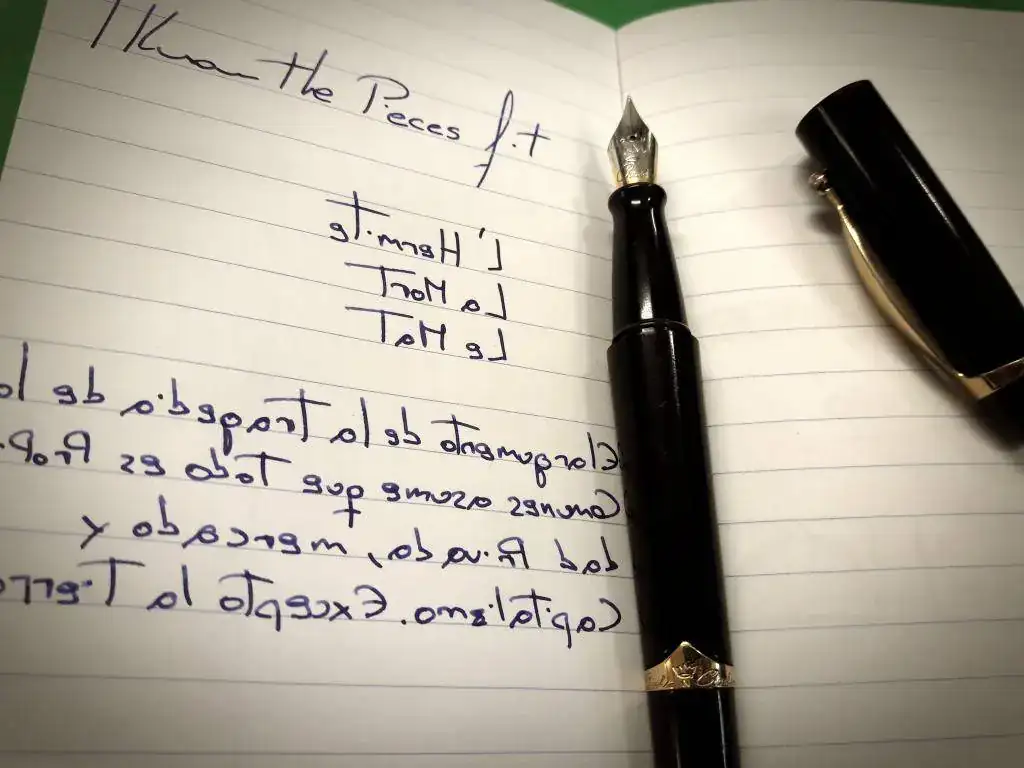 I Know the Pieces fit
L'Hermite
La Mort
Le Mat
El argumento de la Tragedia de lo
Comunes asume que Todo es Propi
dad Privada, mercado y
Capitalismo. Excepto la Tierra